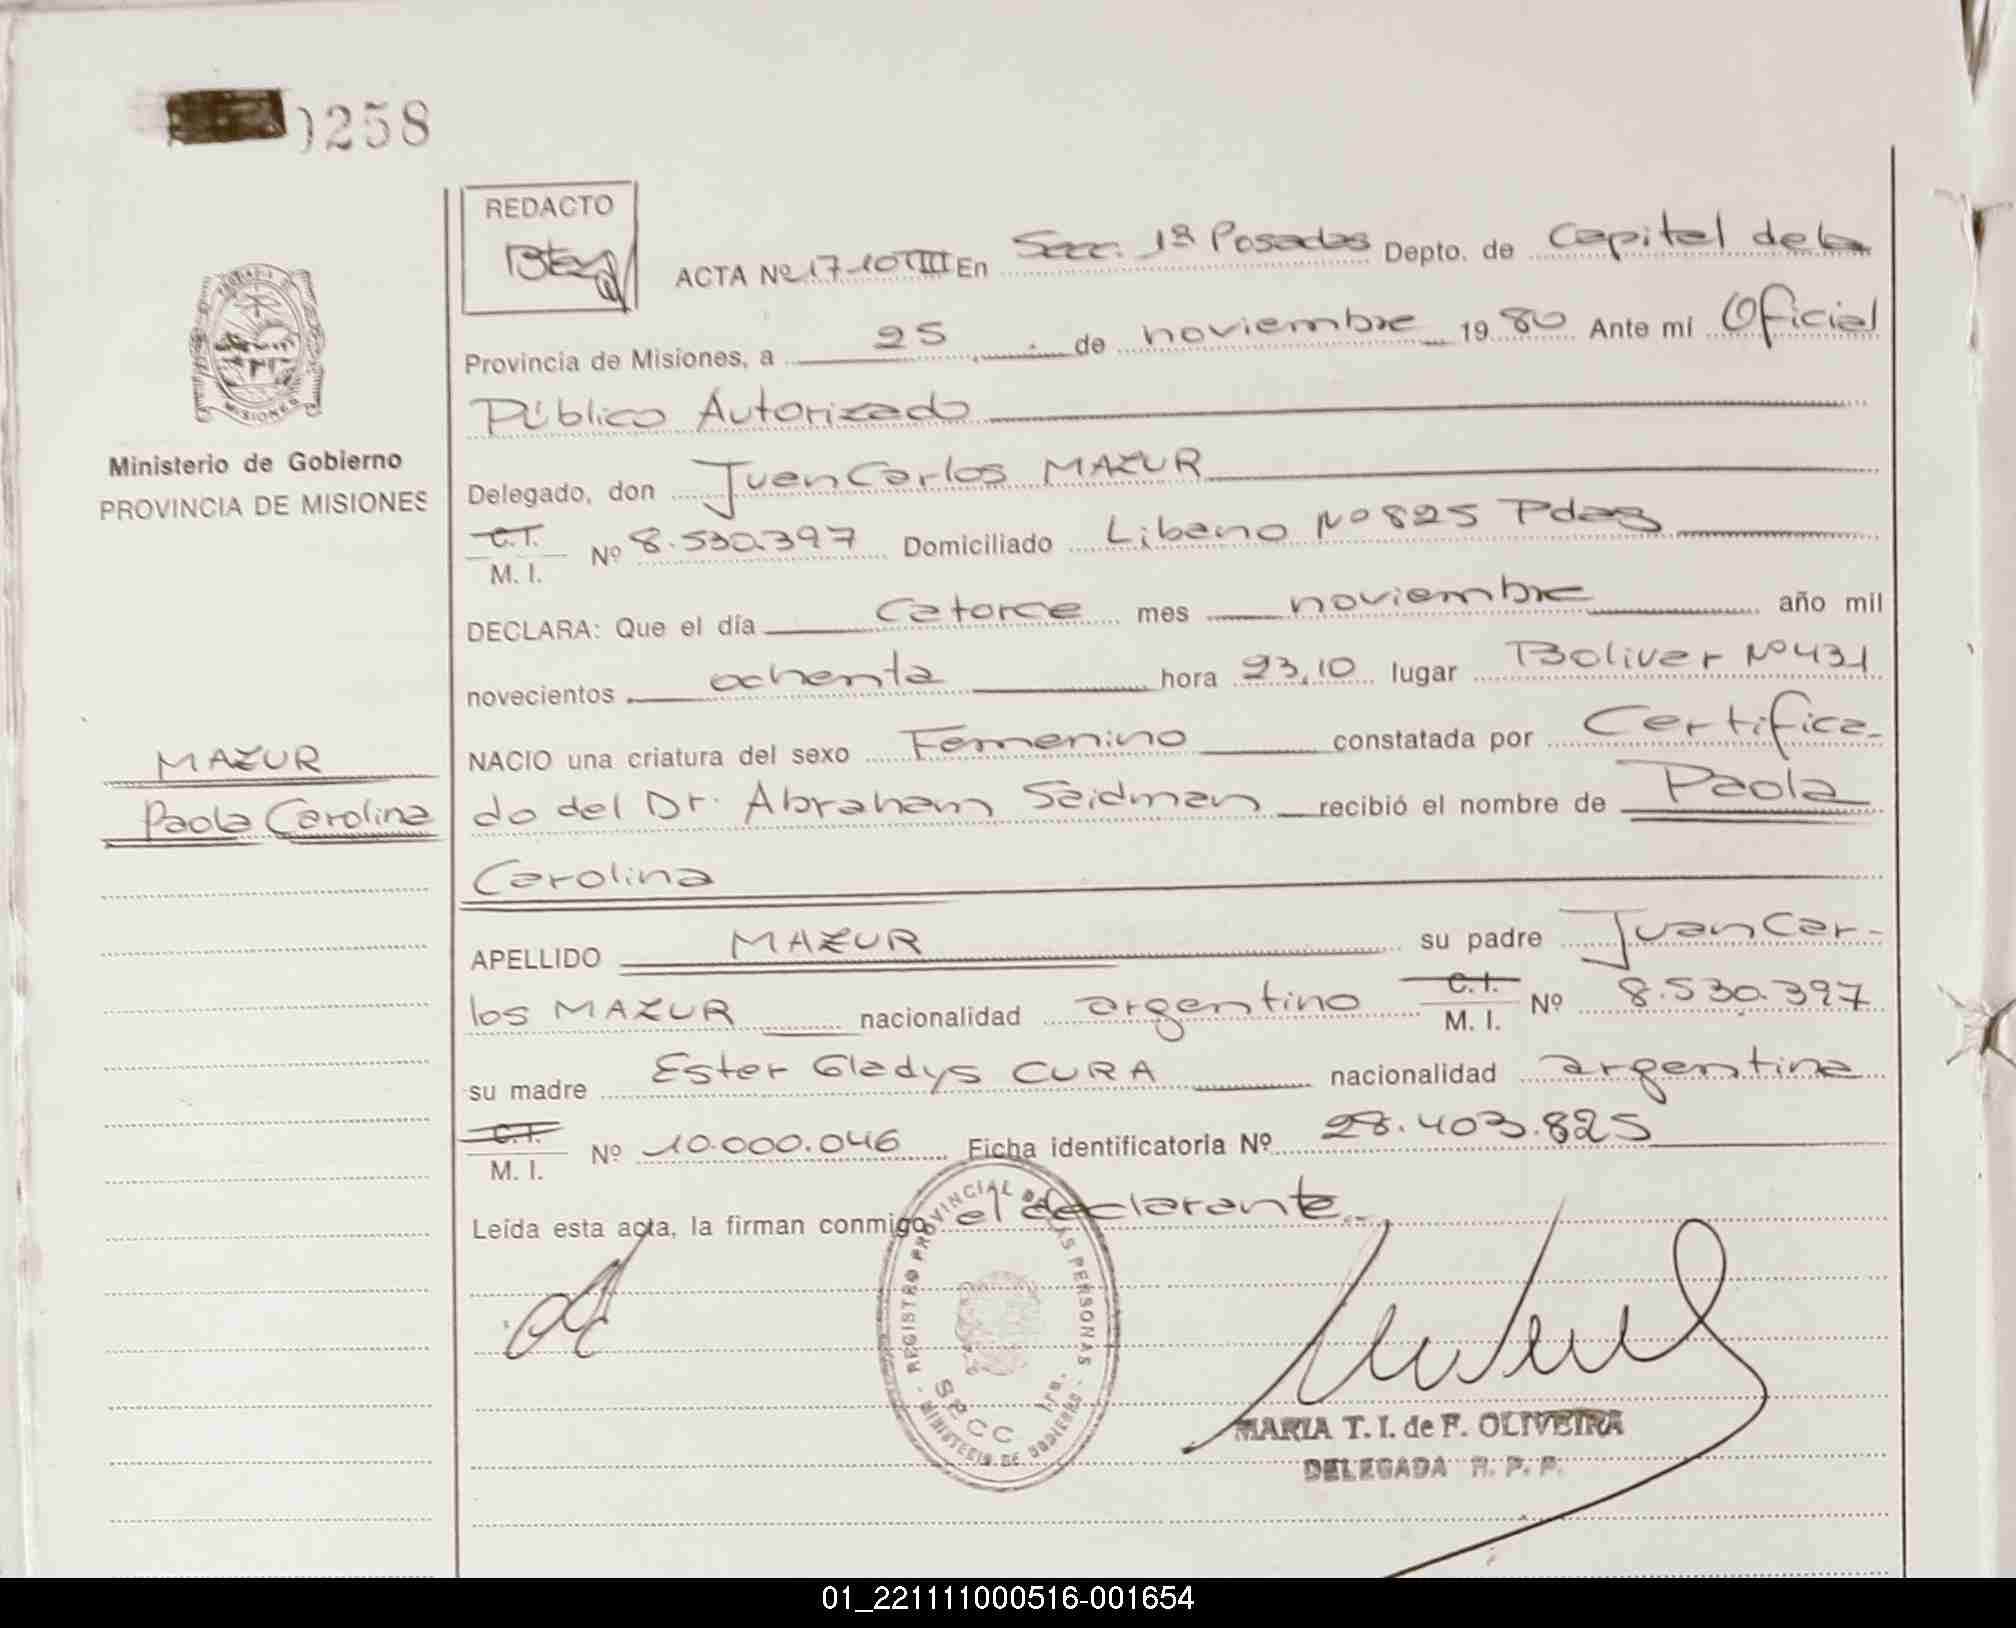 258
REDACTO
ACTA Nº 17-10 VIII En Secc. 1ª Posadas Depto. de Capital de la
Provincia de Misiones, a 25 de noviembre 19 80 Ante mí Oficial
Público Autorizado
Delegado, don Juan Carlos MAZUR
C.I.
M. I. Nº 8.530.397 Domiciliado Libano Nº 825 Pdas
DECLARA: Que el día catorce mes noviembre año mil
novecientos ochenta hora 23,10 lugar Bolivar Nº 431
NACIO una criatura del sexo Femenino constatada por Certifica-
do del Dr. Abraham Seidman recibió el nombre de Paola
Carolina
APELLIDO MAZUR su padre Juan Car-
los MAZUR nacionalidad argentino C.I. M. I. Nº 8.530.397
su madre Ester Gladys CURA nacionalidad argentina
C.I.
M. I. Nº 10.000.046 Ficha identificatoria Nº 28.403.825
Leída esta acta, la firman conmigo el declarante.
MISIONES
Ministerio de Gobierno
PROVINCIA DE MISIONES
MAZUR
Paola Carolina
REGISTRO PROVINCIAL DE LAS PERSONAS
SECC 1ra.
MINISTERIO DE GOBIERNO
MARIA T. I. de F. OLIVEIRA
DELEGADA R. P. P.
01_221111000516-001654